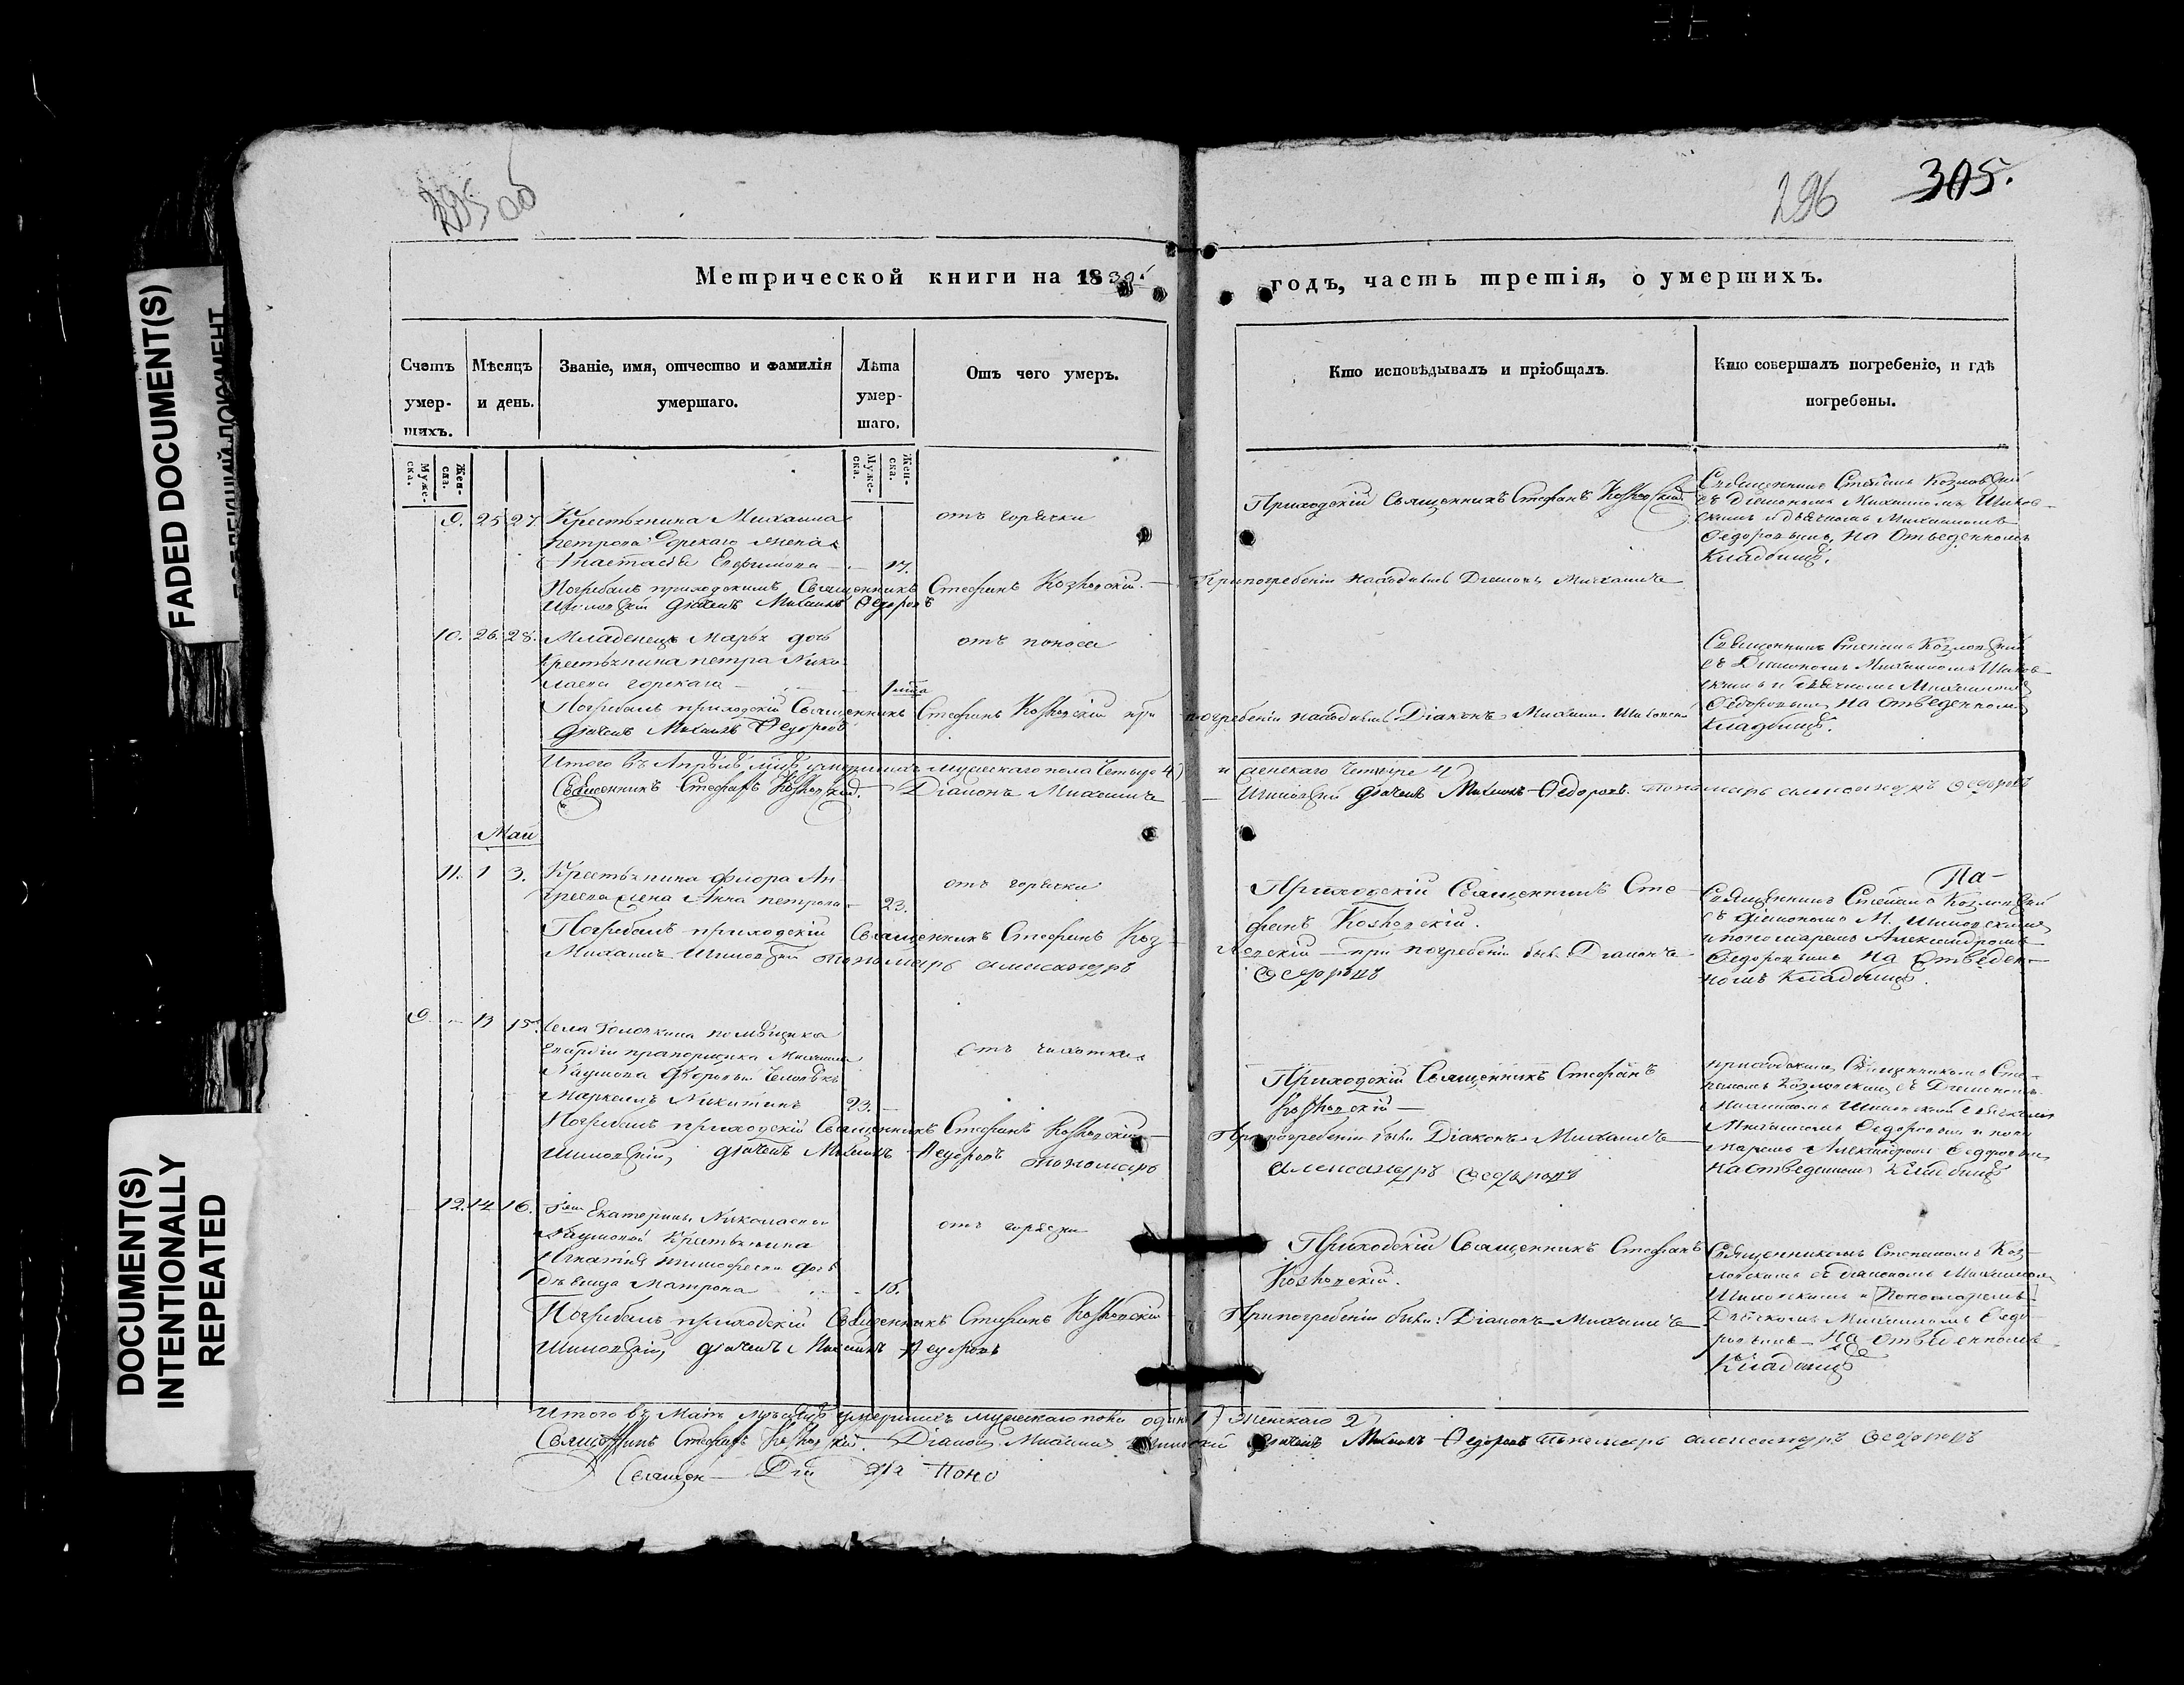 FADED DOCUMENT(S)
DOCUMENT(S)
INTENTIONALLY
REPEATED
295 об
296 305.
Метрической книги на 183
годъ, часть третія, о умершихъ.
Счетъ умер-шихъ.
Мѣсяцъ и день.
Званіе, имя, отчество и фамилія умершаго.
Лѣта умер-шаго.
Отъ чего умеръ.
Кто исповѣдывалъ и пріобщалъ.
Кто совершалъ погребеніе, и гдѣ погребены.
Муже-ска.
Жен-ска.
Муже-ска.
Жен-ска.
9. 25 27 Крестьянина Михаила
Петрова Горскаго жена
Анастасія Ефимова
отъ горячки
Приходскій Священникъ Стефанъ Козловскій
Священникъ Стефанъ Козловскій
съ Діакономъ Михаиломъ
и дьячкомъ Михаиломъ
Федоровымъ, на отведенномъ
кладбищѣ.
Погребалъ приходскій Священникъ Стефанъ Козловскій. При погребеніи находились Діаконъ Михаилъ
дьячекъ Михаилъ Федоровъ
10. 26. 28. Младенецъ Марья дочь
крестьянина Петра Нико-
лаева Горскаго
отъ поноса
Священникъ Стефанъ Козловскій
съ Діакономъ Михаиломъ
и дьячкомъ Михаиломъ
Федоровымъ на отведенномъ
кладбищѣ.
Погребалъ приходскій Священникъ Стефанъ Козловскій при погребеніи находились Діаконъ Михаилъ
дьячекъ Михаилъ Федоровъ
Итого въ Апрѣлѣ мцѣ умершихъ мужескаго пола четыре 4) и женскаго четыре 4)
Священникъ Стефанъ Козловскій. Діаконъ Михаилъ
дьячекъ Михаилъ Федоровъ. пономарь александръ Федоровъ
Май
11. 1 3. Крестьянина Флора Ан-
дреева жена Анна Петрова 23.
отъ горячки
Приходскій Священникъ Сте-
фанъ Козловскій.
Священникъ Стефанъ Козловскій
съ діакономъ М.
и пономаремъ Александромъ
Федоровымъ на отведен-
номъ кладбищѣ.
Погребалъ приходскій Священникъ Стефанъ Коз-
ловскій при погребеніи был. Діаконъ
Михаилъ пономарь александръ
Федоровъ
9. 13 15. села помѣщика
гвардіи прапорщика Михаила
Наумова дворовый человѣкъ
Маркелъ Никитинъ 23.
отъ чихотки
Приходскій Священникъ Стефанъ
Козловскій
приходскимъ Священникомъ Сте-
фаномъ Козловскимъ съ Діакономъ
Михаиломъ
Михаиломъ Федоровымъ и поно-
маремъ Александромъ Федоровымъ
на отведенномъ кладбищѣ
Погребалъ приходскій Священникъ Стефанъ Козловскій
При погребеніи были Діаконъ Михаилъ
дьячекъ Михаилъ Федоровъ пономарь
александръ Федоровъ
12. 14 16. Екатерины Николаевны
Наумовой крестьянина
Игнатія Тимофеева дочь
дѣвица Матрона
отъ горячки
Приходскій Священникъ Стефанъ
Козловскій.
Священникомъ Стефаномъ Коз-
ловскимъ съ діакономъ Михаиломъ
и Пономаремъ
Дьячкомъ Михаиломъ Федо-
ровымъ на отведенномъ
кладбищѣ
Погребалъ приходскій Священникъ Стефанъ Козловскій
При погребеніи были: Діаконъ Михаилъ
дьячекъ Михаилъ Федоровъ
Итого въ Маѣ мѣсяцѣ умершихъ мужескаго пола одинъ 1) женскаго 2)
Священникъ Стефанъ Козловскій. Діаконъ Михаилъ дьячекъ Михаилъ Федоровъ пономарь александръ Федоровъ